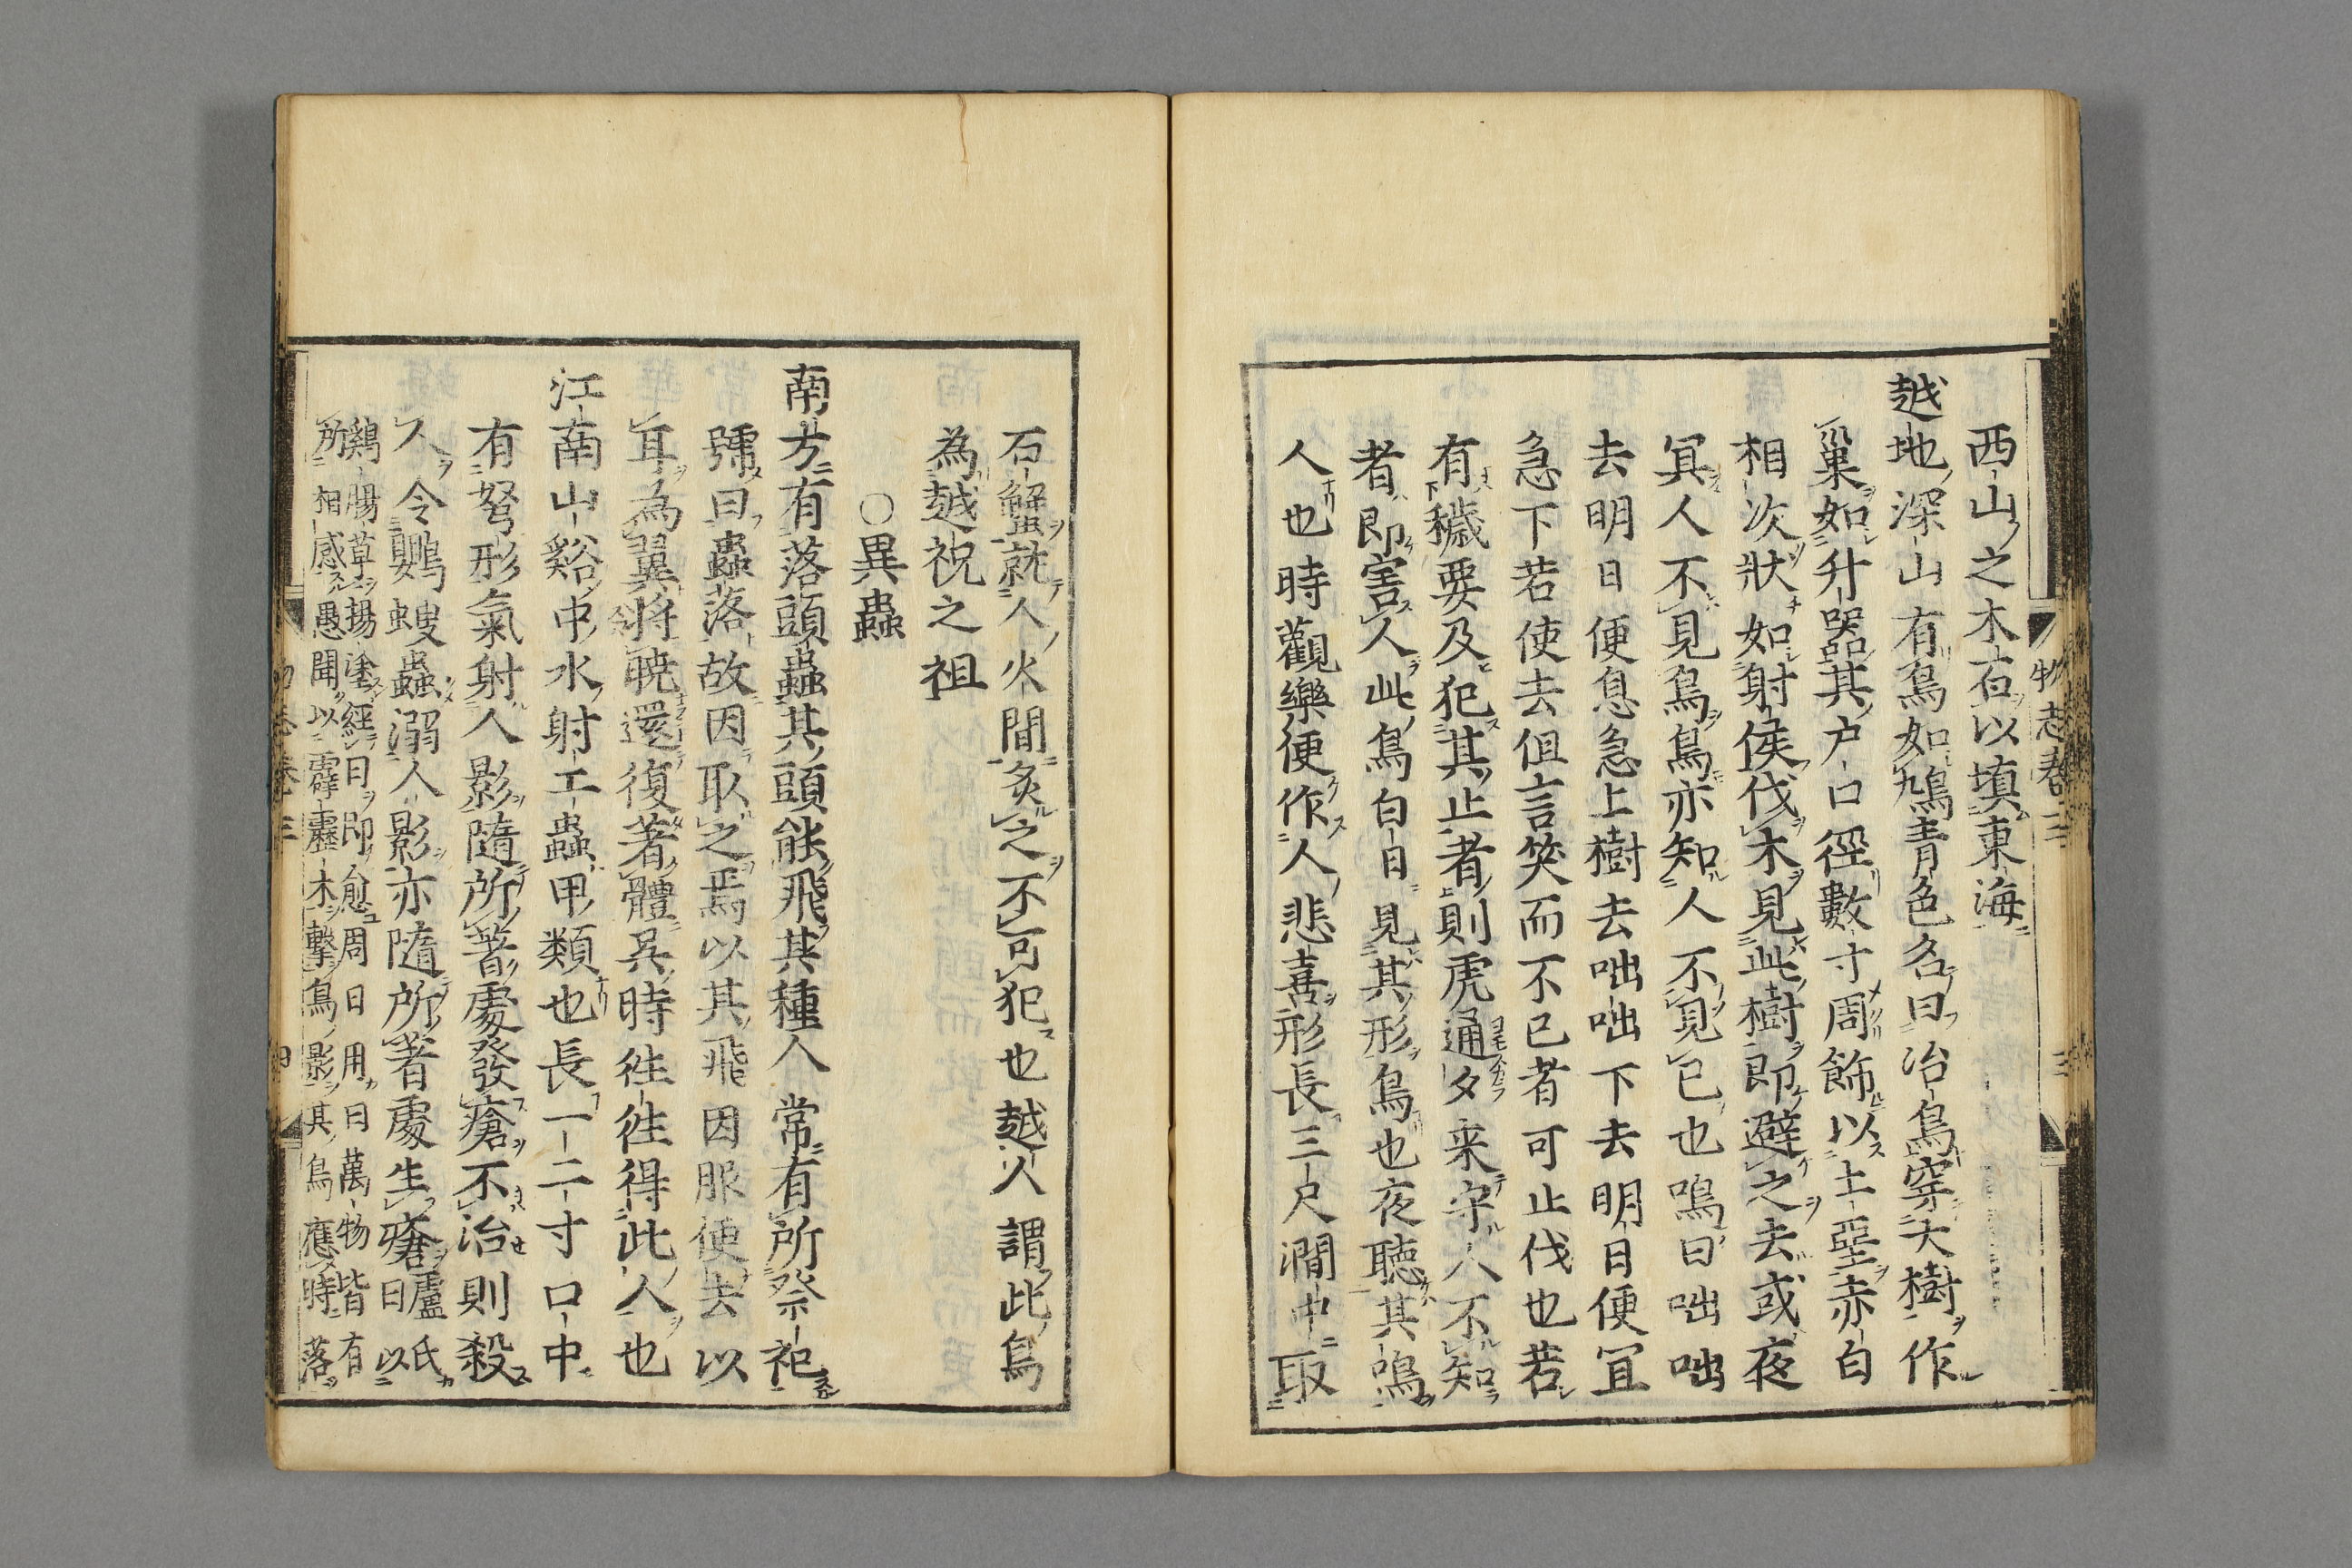 物志卷三
三
西山之木石以填東海
越地深山有鳥如鳩青色名曰冶鳥穿大樹作
巢如升器其户口徑數寸周飾以土堊赤白
相次狀如射侯伐木見此樹即避之去或夜
冥人不見鳥鳥亦知人不見已也鳴曰咄咄
去明日便急上樹去咄咄下去明日便冝
急下若使去但言笑而不已者可止伐也若
有穢要及犯其止者則虎通夕来守人不知
者即害人此鳥白日見其形鳥也夜聽其鳴
人也時觀樂便作人悲喜形長三尺澗中取
石蟹就人火間炙之不可犯也越人謂此鳥
為越祝之祖
○異蟲
南方有落頭蟲其頭能飛其種人常有所祭祀
號曰蟲落故因取之焉以其飛因服便去以
耳為翼將曉還復著體吳時徃徃得此人也
江南山谿中水射工蟲甲類也長一二寸口中
有弩形氣射人影隨所著處發瘡不治則殺
人令鸚螋蟲溺人影亦隨所著處生瘡盧氏
曰以
鷄腸草揚塗經日即愈周日用曰萬物皆有
所相感愚聞以霹靂木擊鳥影其鳥應時落